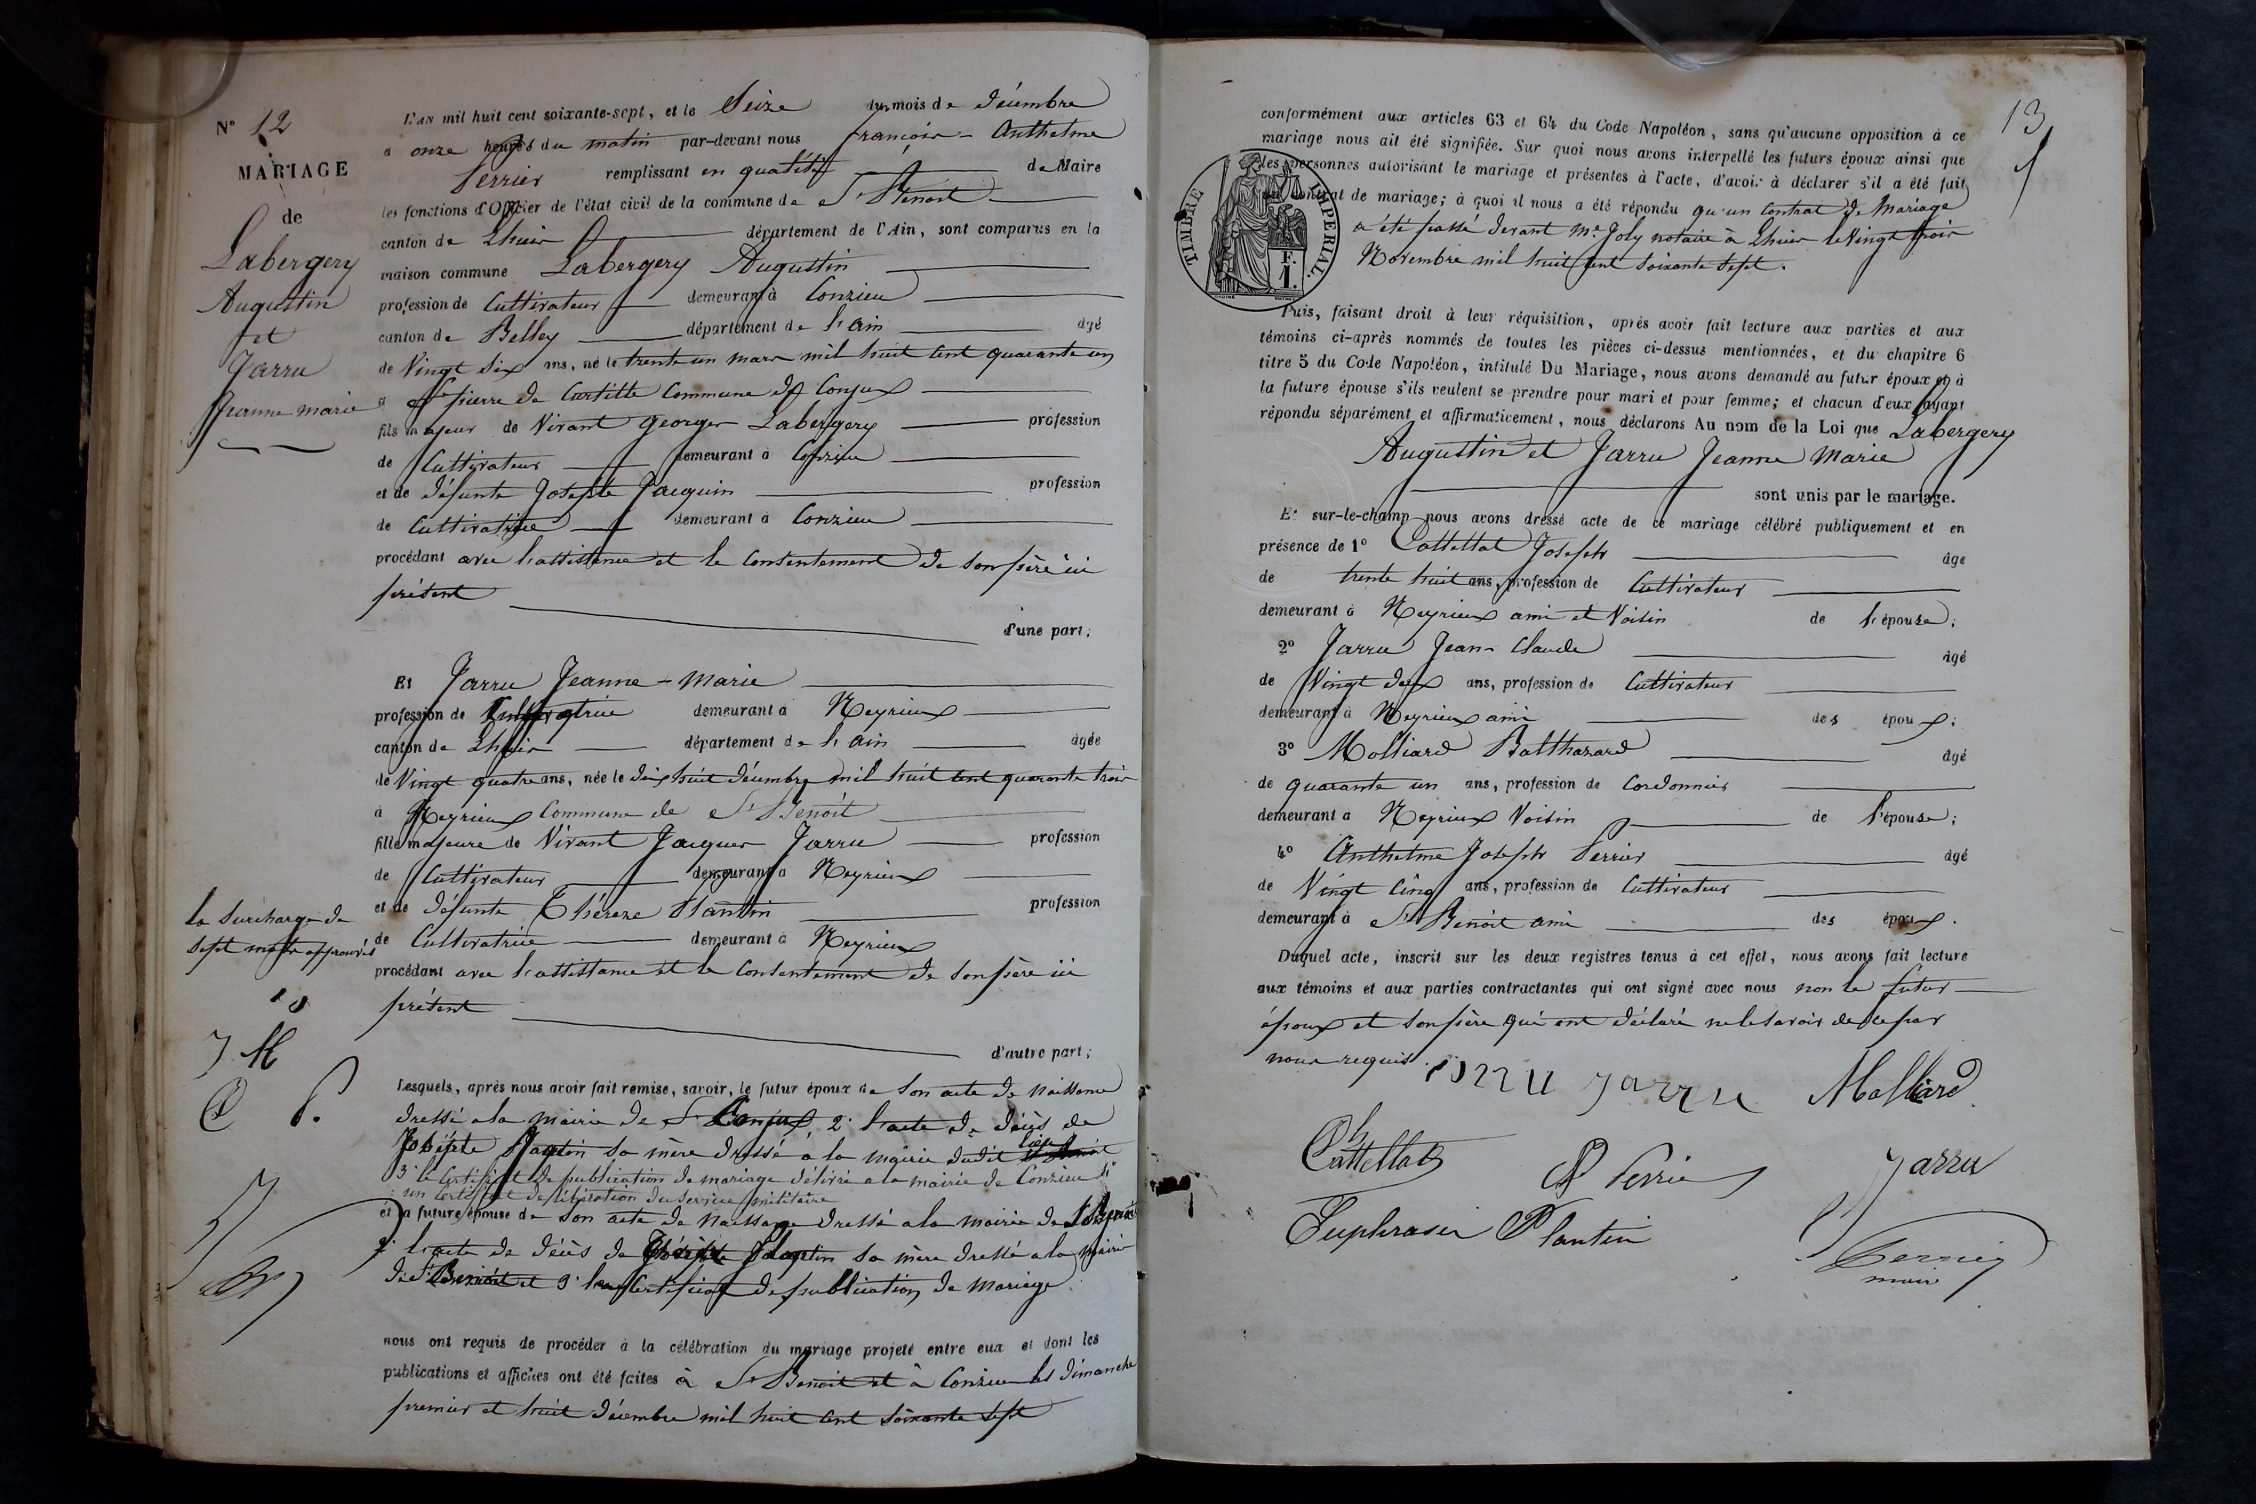 N° 12
MARIAGE
de
Labergery
Augustin
et
Jarru
Jeanne marie
L'an mil huit cent soixante-sept, et le Seize du mois de décembre
à onze heures du matin par-devant nous françois-Anthelme
Perrier remplissant en qualité de Maire
les fonctions d'Officier de l'état civil de la commune de St Benoit
canton de Lhuis département de l'Ain, sont comparus en la
maison commune Labergery Augustin
profession de Cultivateur demeurant à Conzieu
canton de Belley département de l'ain âgé
de Vingt Six ans, né le trente un mars mil huit cent quarante un
à St pierre de Curtille Commune de Conjux
fils majeur de Vivant george Labergery profession
de Cultivateur demeurant à Conzieu
et de défunte Josephte Jacquin profession
de Cultivatrice demeurant à Conzieu
procédant avec l'assistance et le Consentement de son père ici
présent
d'une part;
Et Jarru Jeanne-Marie
profession de Cultivatrice demeurant à Neyrieux
canton de Lhuis département de l'ain âgée
de Vingt quatre ans, née le dix huit décembre mil huit cent quarante trois
à Neyrieux Commune de St Benoit
fille majeure de Vivant Jacques Jarru profession
de Cultivateur demeurant à Neyrieux
et de défunte Thérèze Plantin profession
de Cultivatrice demeurant à Neyrieux
procédant avec l'assistance et le Consentement de son père ici
présent
d'autre part;
la Surcharge de
Sept mots approuvés
J. M
Lesquels, après nous avoir fait remise, savoir, le futur époux de Son acte de Naissance
dressé a la mairie de Conjux 2° l'acte de décès de
Josephte sa mère dressé à la mairie dudit lieu
3° le Certificat de publication de mariage délivré a la mairie de Conzieu
un Certificat de libération du service militaire
et la future épouse de Son acte de Naissance dressé a la mairie de St Benoit
2° l'acte de décès de Plantin sa mère dressé a la mairie
de St Benoit et 3° le Certificat de publication de Mariage
nous ont requis de procéder à la célébration du mariage projeté entre eux et dont les
publications et affiches ont été faites à St Benoit et à Conzieu les dimanche
premier et huit décembre mil huit cent soixante sept
13
conformément aux articles 63 et 64 du Code Napoléon, sans qu'aucune opposition à ce
mariage nous ait été signifiée. Sur quoi nous avons interpellé les futurs époux ainsi que
les personnes autorisant le mariage et présentes à l'acte, d'avoir à déclarer s'il a été fait
un contrat de mariage; à quoi il nous a été répondu qu'un Contrat de Mariage
a été passé devant Me Joly notaire à Lhuis le Vingt trois
Novembre mil huit cent soixante sept.
TIMBRE IMPERIAL.
F.
1.
Puis, faisant droit à leur réquisition, après avoir fait lecture aux parties et aux
témoins ci-après nommés de toutes les pièces ci-dessus mentionnées, et du chapitre 6
titre 5 du Code Napoléon, intitulé Du Mariage, nous avons demandé au futur époux et à
la future épouse s'ils veulent se prendre pour mari et pour femme; et chacun d'eux ayant
répondu séparément et affirmativement, nous déclarons Au nom de la Loi que Labergery
Augustin et Jarru Jeanne Marie
sont unis par le mariage.
Et sur-le-champ nous avons dressé acte de ce mariage célébré publiquement et en
présence de 1° Cattellat Joseph âgé
de trente huit ans, profession de Cultivateur
demeurant à Neyrieux ami et Voisin de l'épouse;
2° Jarru Jean-Claude âgé
de Vingt deux ans, profession de Cultivateur
demeurant à Neyrieux ami des époux;
3° Molliard Balthazard âgé
de quarante un ans, profession de Cordonnier
demeurant à Neyrieux Voisin de l'épouse;
4° Anthelme Joseph Perrier âgé
de Vingt Cinq ans, profession de Cultivateur
demeurant à St Benoit ami des époux.
Duquel acte, inscrit sur les deux registres tenus à cet effet, nous avons fait lecture
aux témoins et aux parties contractantes qui ont signé avec nous non le futur
époux et son père qui ont déclaré ne le savoir de ce par
nous requis.
jarru Molliard
Cattellat
Perrier
Jarru
Euphrasie Plantin
Perrier
maire